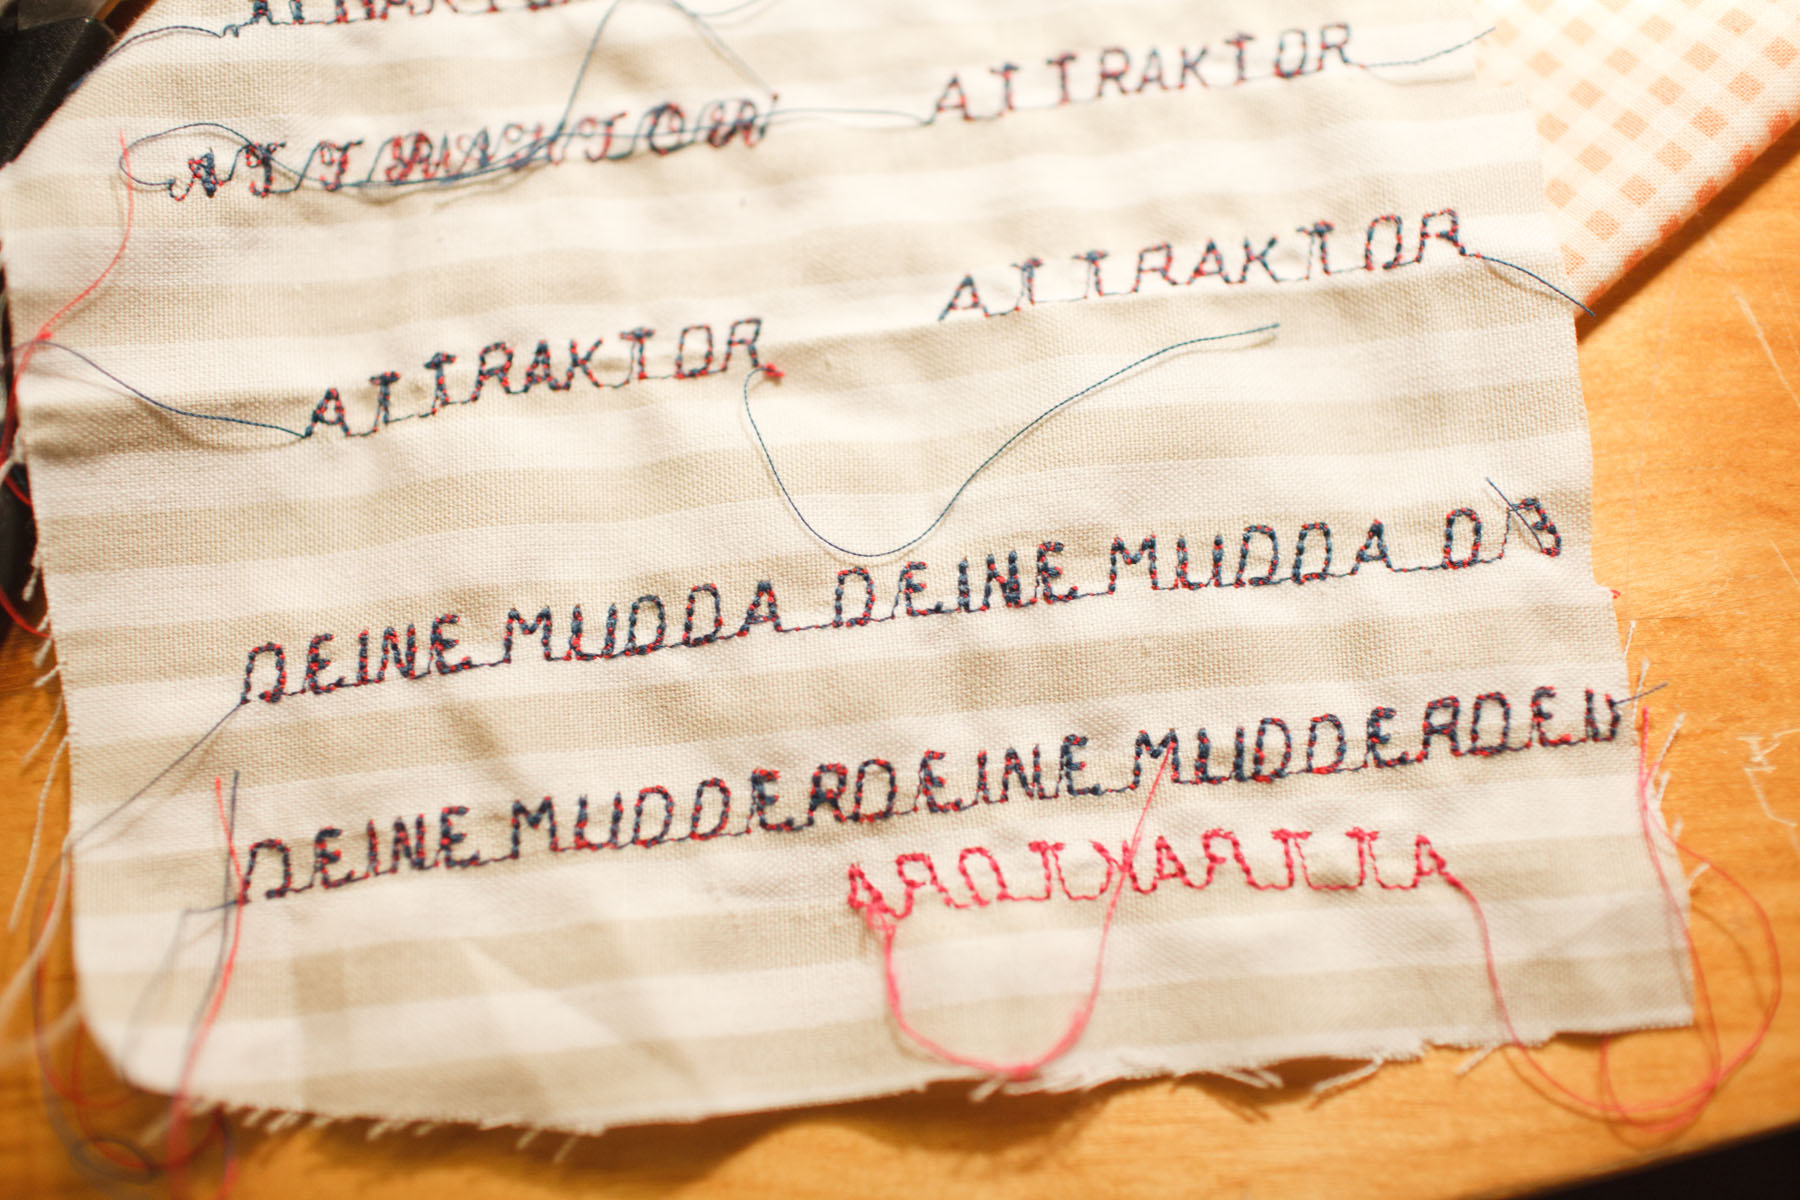 ATTRAKTOR
ATTRAKTOR
ATTRAKTOR
ATTRAKTOR
ATTRAKTOR
DEINE MUDDA DEINE MUDDA D
DEINE MUDDERDEINE MUDDERDEIN
ATTRAKTOR